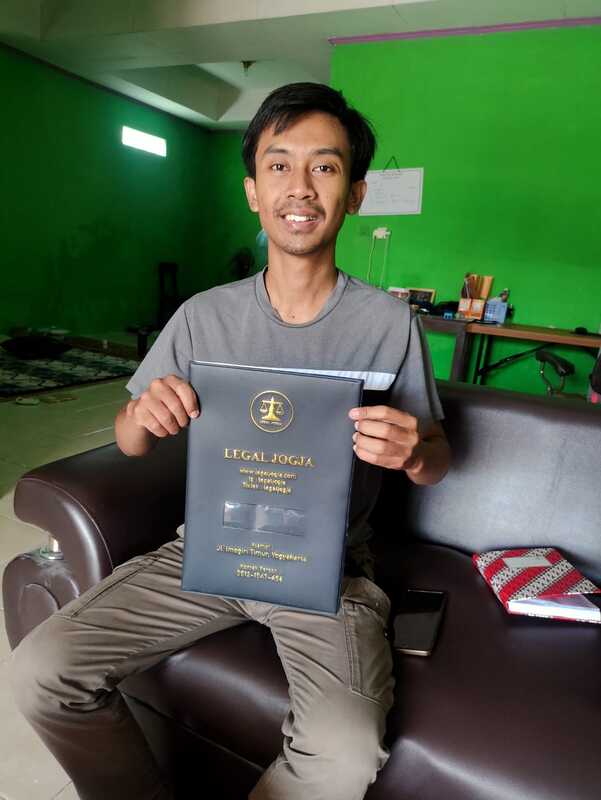 LEGAL JOGJA
LEGAL JOGJA
www.legaljogja.com
IG : legaljogja
Tiktok : legaljogja
Alamat
Jl. Imogiri Timur, Yogyakarta
Kontak Person